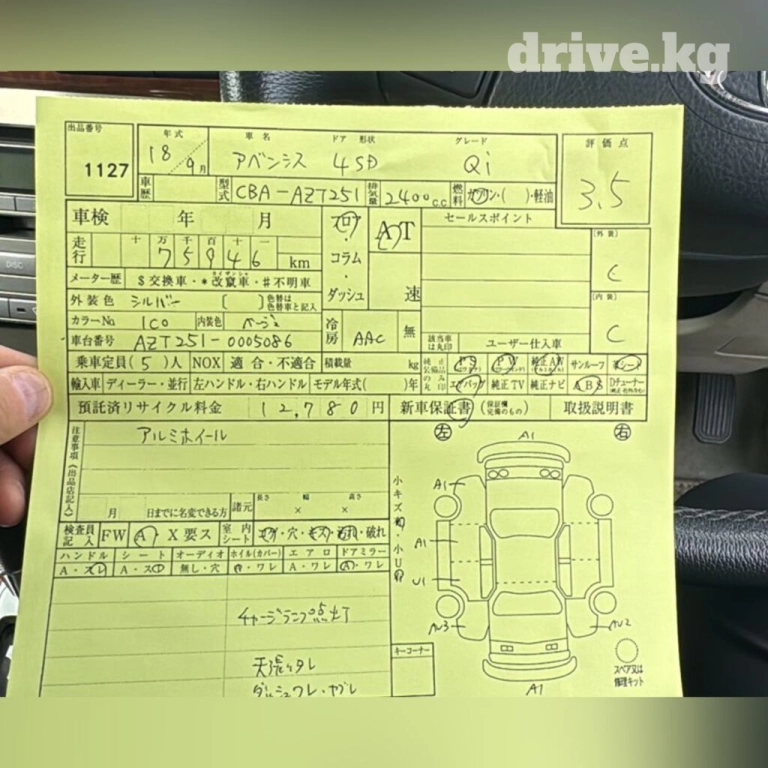 drive.kg
出品番号 年式 車名 ドア 形状 グレード 評価点
1127 18/9月 アベンシス 4SD Qi 3.5
車歴 型式 CBA-AZT251 排気量 2400cc 燃料 ガソリン・( )・軽油
車検 年 月 回・コラム・ダッシュ AT 速 セールスポイント
[外装] C
走行 十万千百十一
75946 km
[内装] C
メーター歴 $交換車・*改竄車・#不明車
外装色 シルバー [ ] 色替は色替車と記入
カラーNo 1C0 内装色 ベージュ 冷房 AAC 無 該当車は丸印 ユーザー仕入車
車台番号 AZT251-0005086
乗車定員(5)人 NOX 適合・不適合 積載量 kg 純正装備品のみ丸印 PS PW 純正AW サンルーフ 革シート
輸入車 ディーラー・並行 左ハンドル・右ハンドル モデル年式( )年 エアバック 純正TV 純正ナビ ABS Dチューナー
預託済リサイクル料金 12,780円 新車保証書(保証欄完備のもの) 取扱説明書
注意事項(出品店記入) アルミホイール
左 右
A1
A1
小キズ・小U
A1
U1
AU3 AU2
A1
月 日までに名変できる方 諸元 長さ × 幅 × 高さ
検査員記入 FW A X要ス 室内シート コゲ・穴・キズ・汚れ・破れ
ハンドル シート オーディオ ホイル(カバー) エアロ ドアミラー
A・スレ A・スレ 無し・穴 キ・ワレ A・ワレ A・ワレ
チャージランプ点灯
キーコーナー
天張りタレ
ダッシュワレ・ヤブレ
スペア又は修理キット
DISC